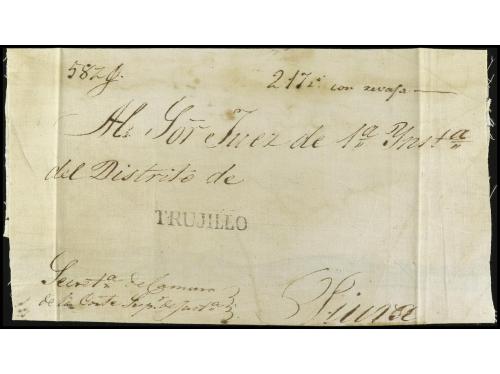 582 g. 217 rs con revaja
Al Sor. Juez de 1ª Ynstª
del Distrito de
TRUJILLO
Secretª de Camara
de la Corte Supr. de Justª
Piura